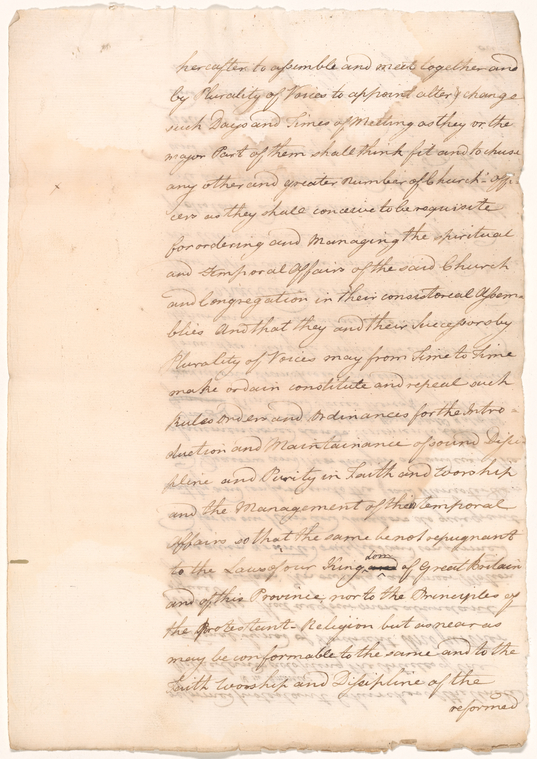 hereafter to assemble and meet together and
by Plurality of Voices to appoint alter & change
such Days and Times of Meeting as they or the
major Part of them shall think fit and to chuse
any other and greater Number of Church-Offi-
cers as they shall conceive to be requisite
for ordering and Managing the spiritual
and temporal Affairs of the said Church
and Congregation in their consistorial Assem-
blies And that they and their Successors by
Plurality of Voices may from Time to Time
make ordain constitute and repeal such
Rules Orders and Ordinances for the Intro-
duction and Maintainance of sound Disci
pline and Purity in Faith and Worship
and the Management of their temporal
Affairs so that the same be not repugnant
to the Laws of our Kingdom of Great Britain
and of this Province nor to the Principles of
the Protestant-Religion but as near as
may be conformable to the same and to the
Faith Worship and Discipline of the
reformed